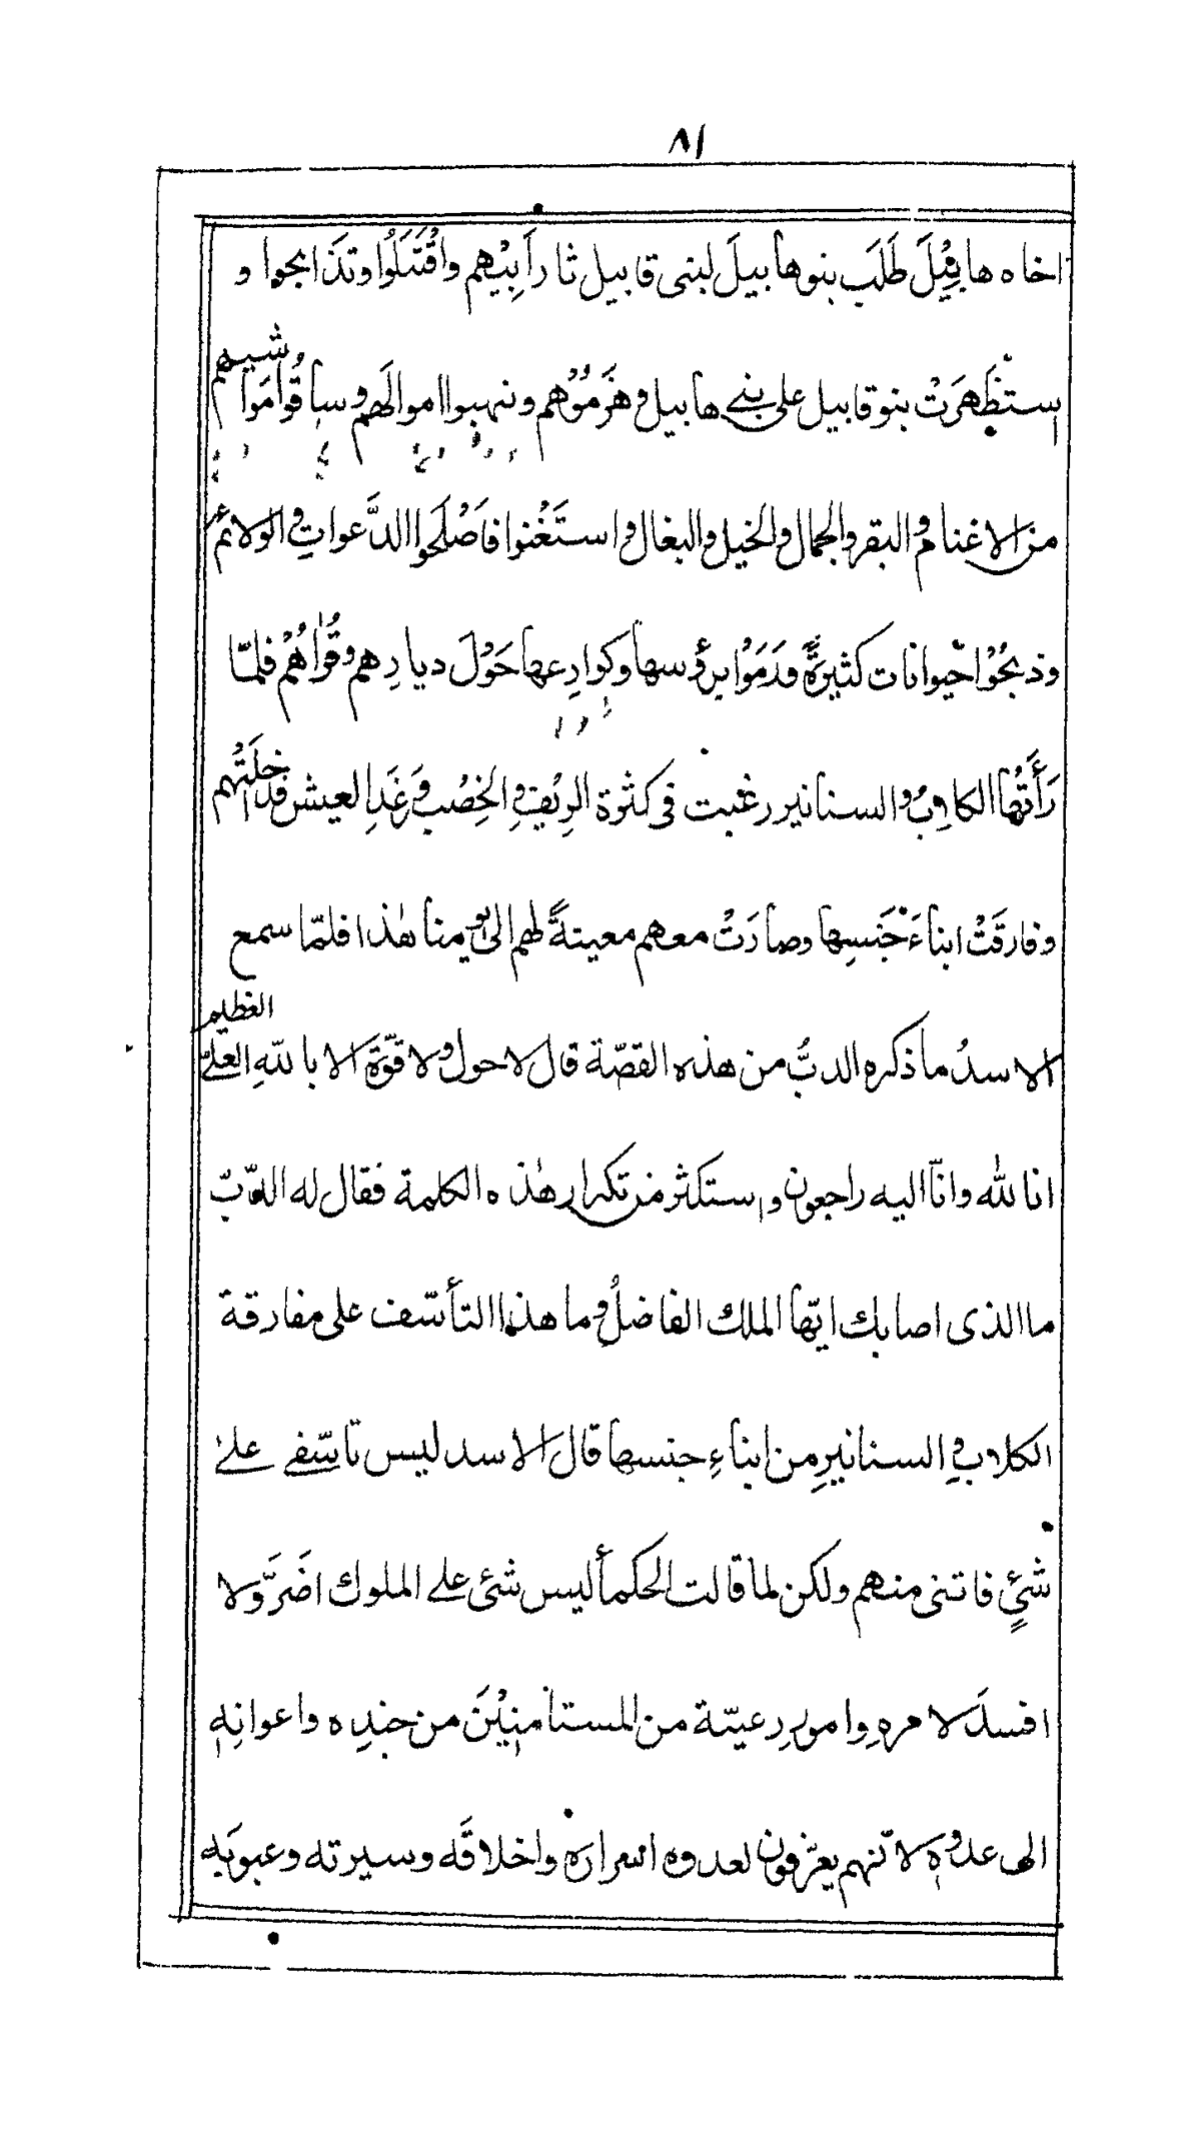 ٨١
اخاه هابِيْلَ طَلَبَ بنو هابيلَ لبنى قابيل ثار أَبِيْهم واقْتَتَلُوا وتذَابحوا و
استظَهرَتْ بنو قابيل على بنى هابيل وهزَمُوْهم ونهبوا اموالَهم وساقُوا مَواشيهم
من الاغنام والبقر والجمال والخيل والبغال واستَغْنوا فاَصْلَحوا الدَّعواتِ والولائم
وذبحُوْا حيوانات كثيرةً ورَمَوْا برؤسها وكوارِعها حَوْلَ ديارِهم وقُراهُمْ فلمّا
رَأَتْها الكلابُ والسنانير رغبت فى كثرة الرِيْفِ والخِصْب ورَغَدِ العيش فدَاخلَتْهم
وفارقَتْ ابناءَ جَنسِها وصارَتْ معهم معينةً لهم الى يومنا هٰذا فلمّا سمع
الاسدُ ما ذكره الدبُّ من هذه القصّة قال لا حول ولا قوّة الا باللّهِ العلىّ العظيم
انا لله وانّا اليه راجعون واستكثر من تكرار هٰذه الكلمة فقال له الدبّ
ما الذى اصابك ايّها الملك الفاضلُ وما هذا التأسّف على مفارقة
الكلابِ والسنانيرِ من ابناءِ جنسها قال الاسد ليس تاسّفى على
شئٍ فاتنى منهم ولكن لما قالت الحكمأ ليس شئ على الملوك اضَرَّ ولا
افسدَ لامرهِ وامورِ رعيّة من المستأمنِيْنَ من جندِه واعوانِهٖ
الى عدوِّهٖ لانّهم يعرّفون لعدوه اسرارَه واخلاقَه وسيرته وعيوبَه